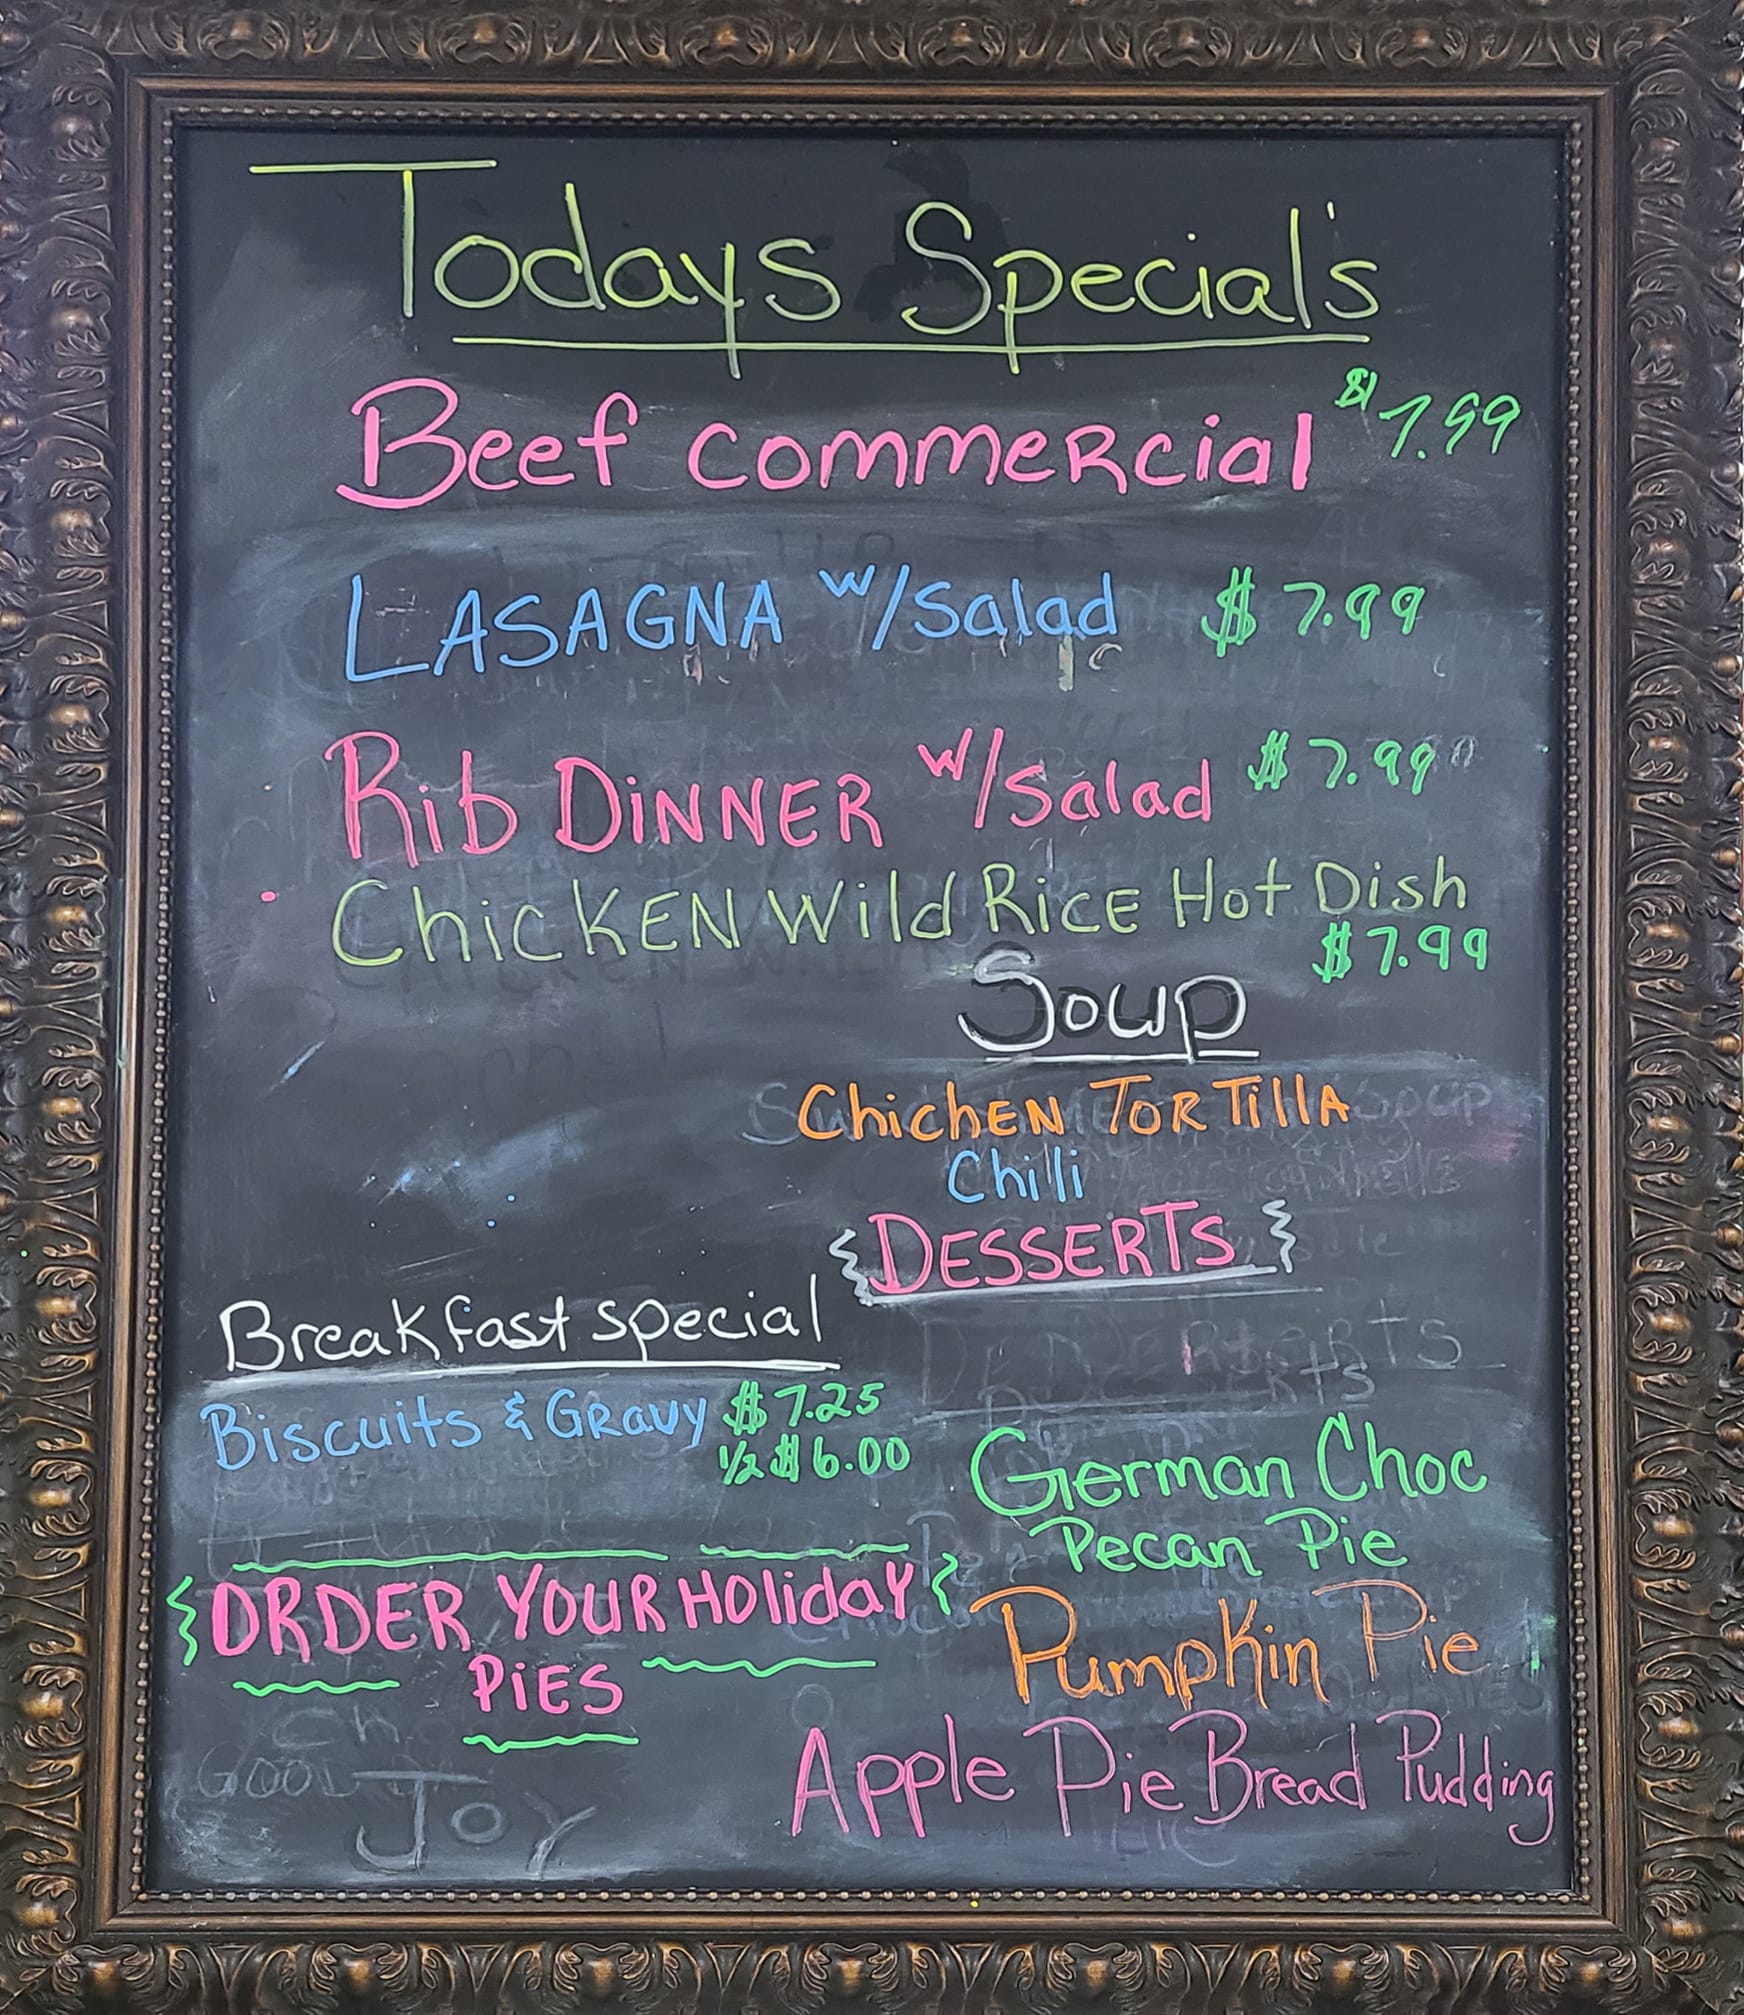 Todays Special's
Beef commercial $7.99
LASAGNA w/Salad $7.99
Rib DiNNER w/Salad $7.99
ChicKEN Wild RiCE Hot Dish
$7.99
Soup
ChichEN TORTillA
Chili
DESSERTS
Breakfast special
Biscuits & GRavy $7.25
1/2 $6.00
German Choc
Pecan Pie
ORDER YOUR HOliday
PiES
Pumpkin Pie
Apple Pie Bread Pudding
GOOD
JOY